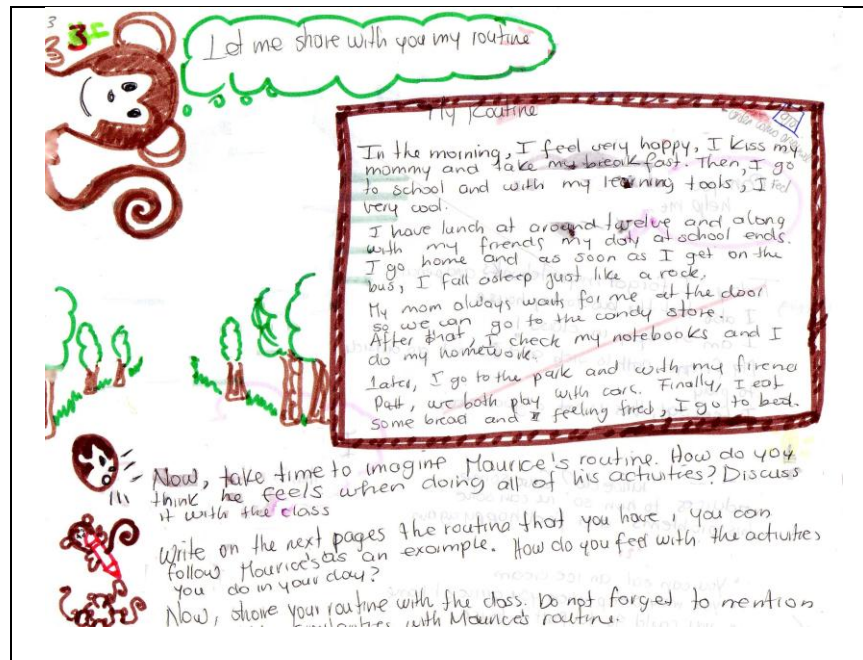 3
3
Let me share with you my routine
My Routine
In the morning, I feel very happy, I kiss my
mommy and take my breakfast. Then, I go
to school and with my learning tools, I feel
very cool.
I have lunch at around twelve and along
with my friends my duty at school ends.
I go home and as soon as I get on the
bus, I fall asleep just like a rock,
My mom always waits for me at the door
so we can go to the candy store.
After that, I check my notebooks and I
do my homework.
Later, I go to the park and with my firend
Patt, we both play with cars. Finally, I eat
some bread and feeling tired, I go to bed.
Now, take time to imagine Maurice's routine. How do you
think he feels when doing all of his activities? Discuss
it with the class
Write on the next pages the routine that you have, you can
follow Maurice's as an example. How do you feel with the activities
you do in your day?
Now, share your routine with the class. Do not forget to mention
with Maurice's routine.